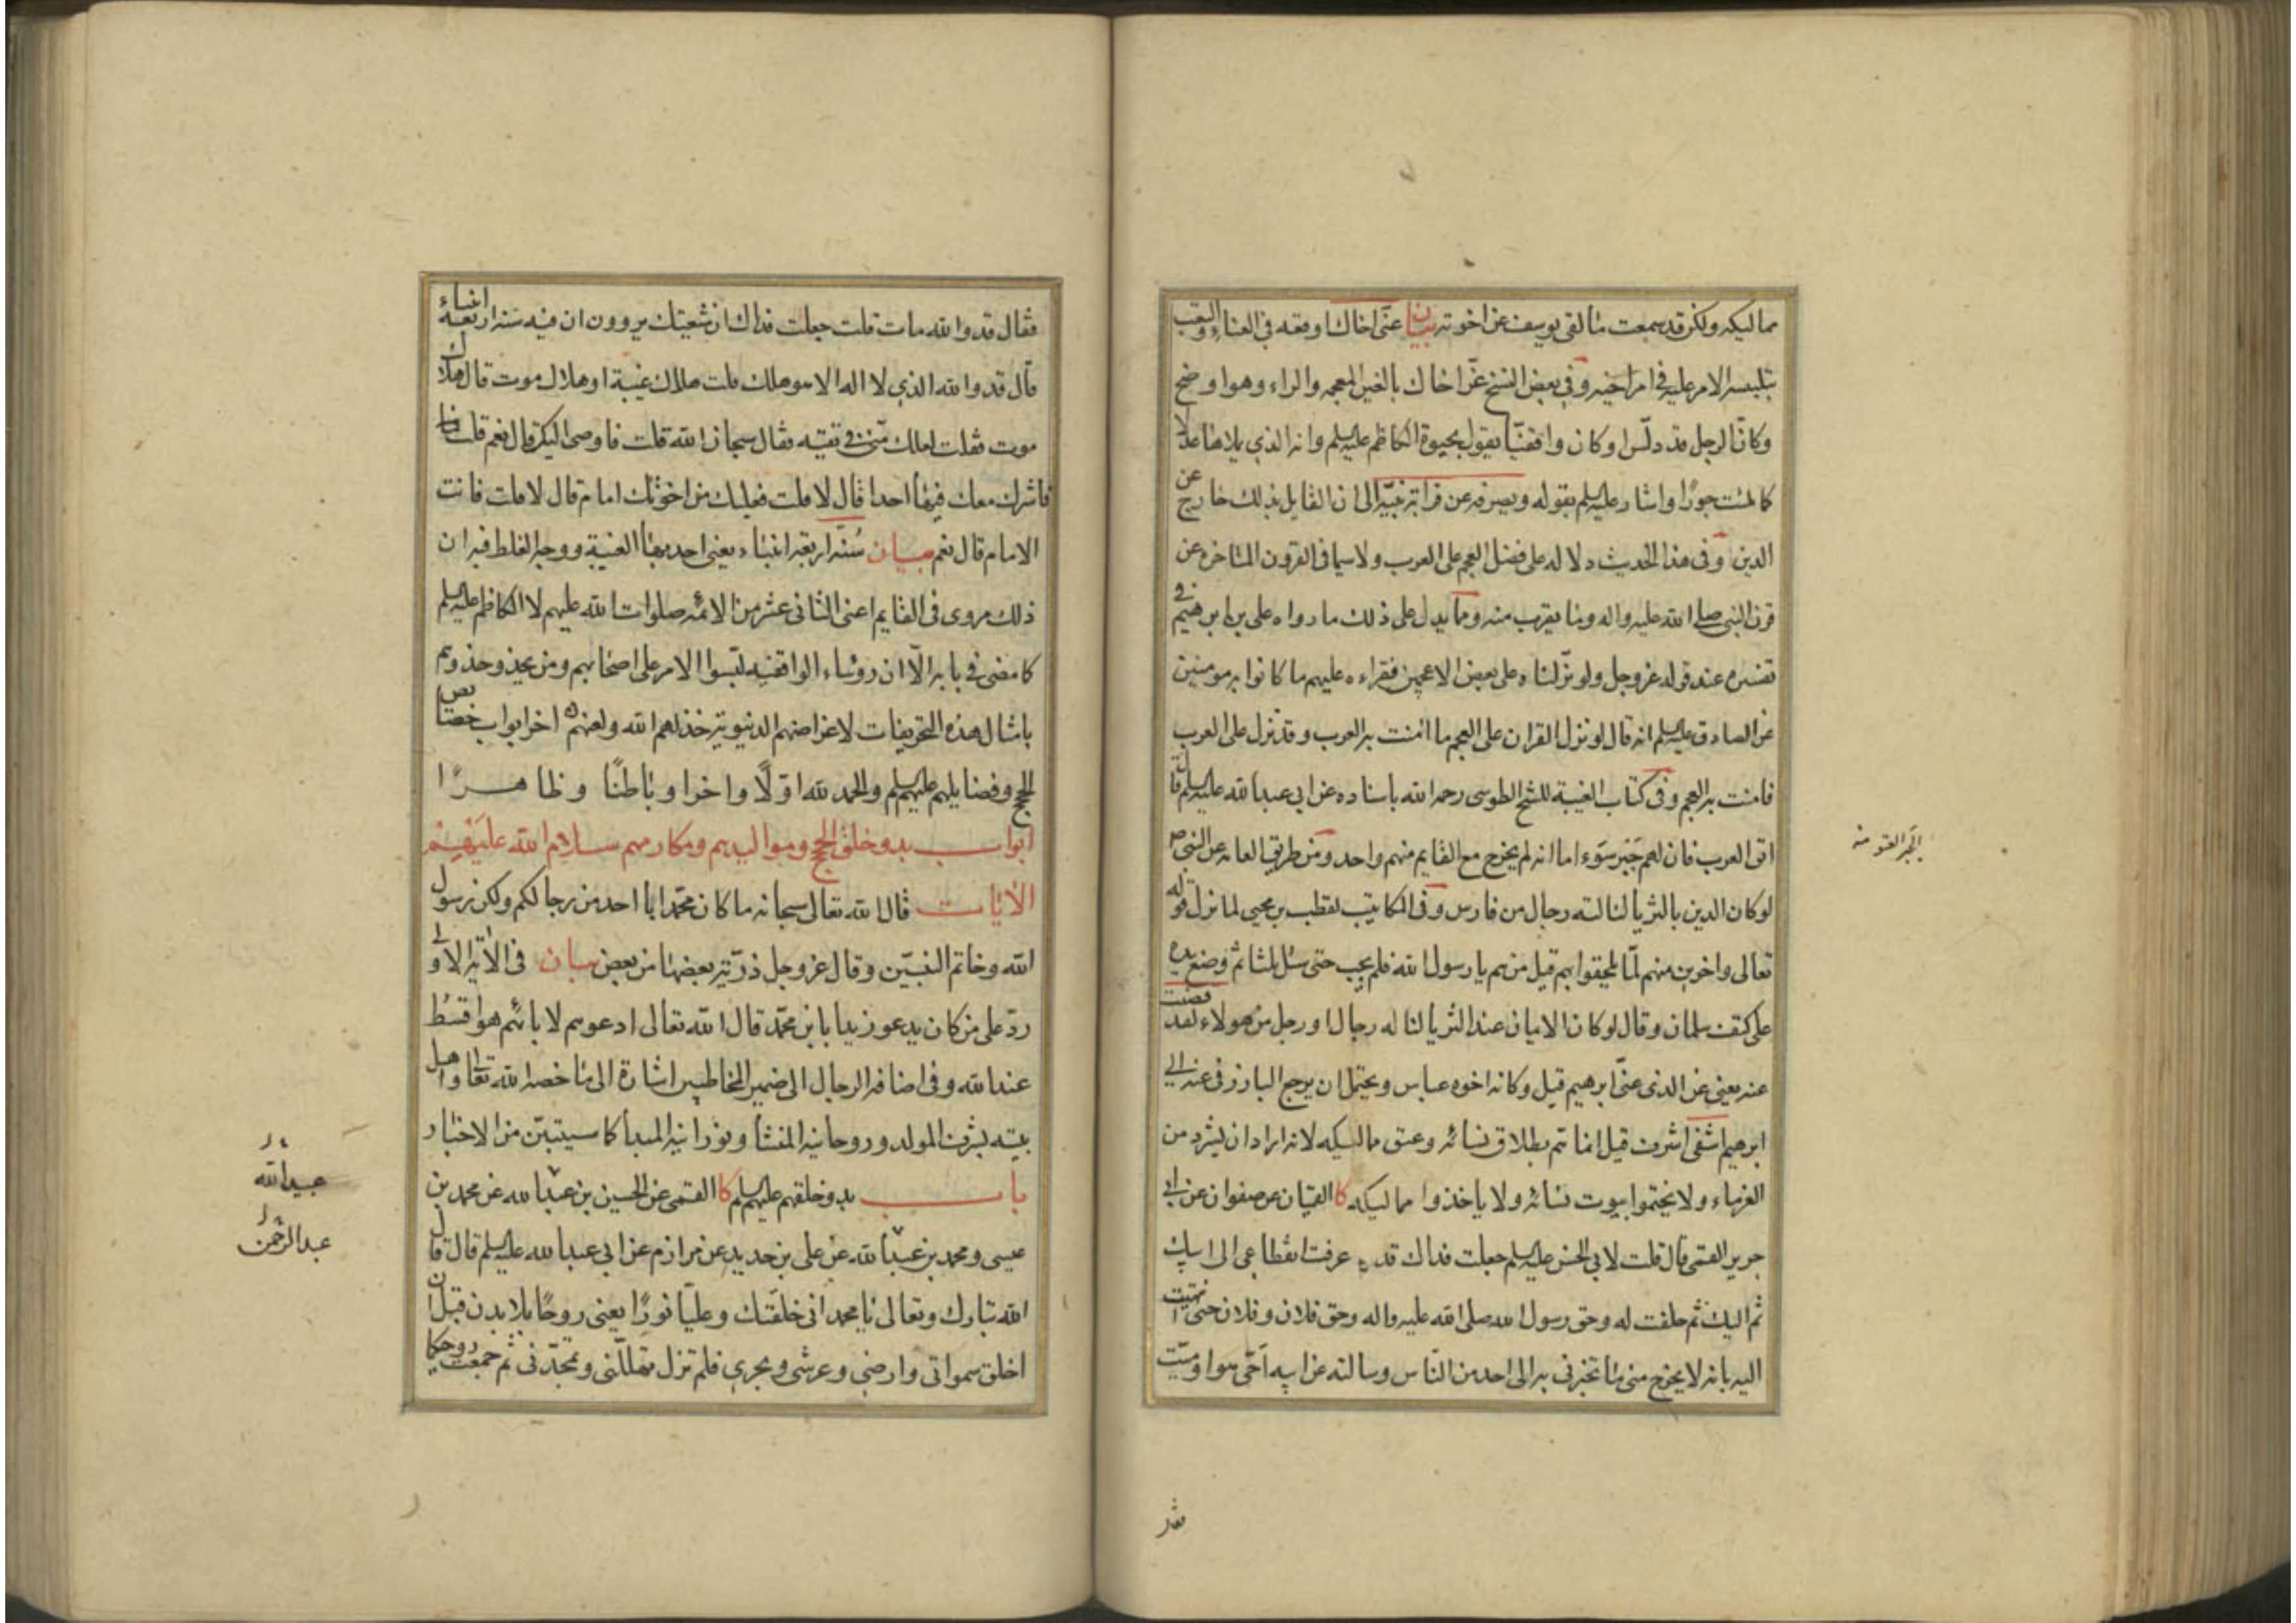 مماليكه ولكن قد سمعت ما لقى يوسف من اخوته بيان عنّى اخاك اوقعه في العناء والتعب
بتلبيسه الامر عليه في امر اخيه وفي بعض النسخ غرّ اخاك بالغين المعجمه والراء وهو اوضح
وكانّ الرجل قد دلّس او كان واقفيّا يقول بحيوة الكاظم عليه السلم وانه الذي يملاها عدلا
كما ملئت جورًا واشار عليه السلم بقوله ويصرفه عن قرابة نبيّه الى ان القايل بذلك خارج عن
الدين وفى هذا الحديث دلاله على فضل العجم على العرب ولا سيما في القرون المتاخره عن
قرن النبي صلى الله عليه واله وما يقرب منه ومما يدل على ذلك ما رواه على بن ابرهيم في
تفسيره عند قوله عز وجل ولو نزّلناه على بعض الاعجمين فقراءه عليهم ما كانوا به مومنين
عن الصادق عليه السلم انه قال لو نزل القران على العجم ما امنت به العرب وقد نزل على العرب
فامنت به العجم وفى كتاب الغيبة للشيخ الطوسى رحمه الله باسناده عن ابي عبد الله عليه السلم قال
اتق العرب فان لهم خبر سوء اما انه لم يخرج مع القايم منهم واحد ومن طريق العامه عن النبي ص
لو كان الدين بالثريا لنالته رجال من فارس وفى المكاتيب لقطب بن محيى لما نزل قوله
تعالى واخرين منهم لمّا يلحقوا بهم قيل من هم يا رسول الله فلم يجب حتى سئل ثلثا ثم وضع يده
على كتف سلمان وقال لو كان الايمان عند الثريا لناله رجال او رجل من هولاء لقد قضيت
عنه يعني عن الذى عنّى ابرهيم قيل وكانه اخوه عباس ويحتمل ان يرجع البارز في عنه الى
ابرهيم اشفى اشرف قيل انما تم بطلاق نسائه وعتق مماليكه لانه اراد ان يشرد من
الغرماء ولا يختموا بيوت نسائه ولا ياخذوا مماليكه كا القميّان عن صفوان عن ابي
جرير القمى قال قلت لابى الحسن عليه السلم جعلت فداك قد عرفت انقطاعى الى ابيك
ثم اليك ثم حلفت له وحق رسول الله صلى الله عليه واله وحق فلان وفلان حتى انتهيت
اليه بانه لا يخرج منى ما تخبرنى به الى احد من الناس وسالته عن ابيه احىّ هو او ميّت
فقال قد والله مات قلت جعلت فداك ان شيعتك يروون ان فيه سنه اربعه انبياء
قال قد والله الذي لا اله الا هو هلك قلت هلاك غيبة او هلاك موت قال هلاك
موت فقلت لعلك منّى في تقيّه فقال سبحان الله قلت فاوصى اليك قال نعم قلت فما
فاشرك معك فيها احدا قال لا قلت فعليك من اخوتك امام قال لا قلت فانت
الامام قال نعم بيان سُنّه اربعه انبياء يعني احديها الغيبة ووجه الغلط فيه ان
ذلك مروى في القايم اعنى الثاني عشر من الائمه صلوات الله عليهم لا الكاظم عليه السلم
كما مضى في بابه الّا ان روساء الواقفيه لبّسوا الامر على اصحابهم ومن يحذو حذوهم
بامثال هذه التحريفات لاغراضهم الدنيوية خذلهم الله ولعنهم اخر ابواب خصايص
الحجج وفضايلهم عليهم السلم والحمد لله اوّلًا واخرا وباطنًا وظاهرًا
ابواب بدو خلق الحجج ومواليدهم ومكارمهم سلام الله عليهم
الايات قال الله تعالى سبحانه ما كان محمد ابا احد من رجالكم ولكن رسول
الله وخاتم النبيّين وقال عز وجل ذرّية بعضها من بعض بيان في الاية الاولى
ردّ على من كان يدعو زيدا بابن محمّد قال الله تعالى ادعوهم لابائهم هو اقسط
عند الله وفى اضافه الرجال الى ضمير المخاطبين اشارة الى ما خصه الله تعالى واهل
بيته بشرف المولد وروحانيه المنشأ ونورانيه المبدأ كما سيتبيّن من الاخبار
باب بدو خلقهم عليهم السلم كا القمى عن الحسين بن عبد الله عن محمد بن
عيسى ومحمد بن عبد الله عن على بن حديد عن مرازم عن ابي عبد الله عليه السلم قال قال
الله تبارك وتعالى يا محمد انى خلقتك وعليّا نورًا يعنى روحًا بلا بدن قبل ان
اخلق سمواتى وارضى وعرشى وبحرى فلم تزل تهللنى وتمجدنى ثم جمعت روحيكما
عبيد الله
عبد الرحمن